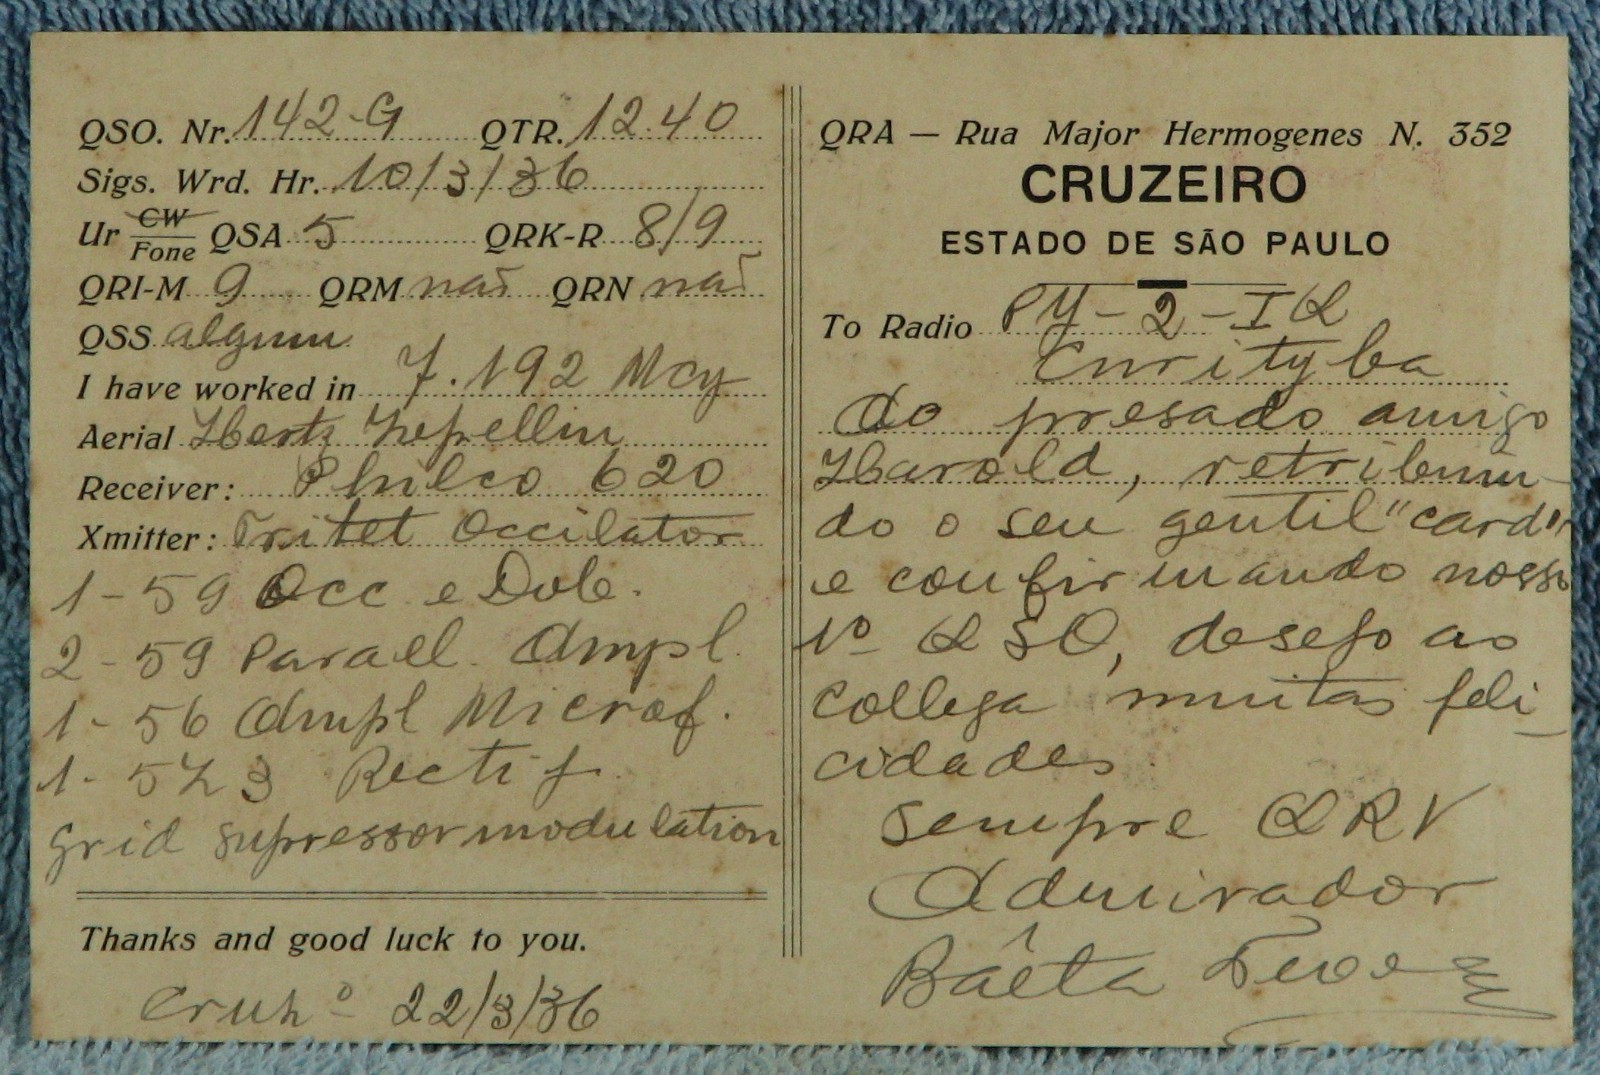 QSO. Nr. 142-G QTR. 12.40
Sigs. Wrd. Hr. 10/3/36
Ur CW/Fone QSA 5 QRK-R 8/9
QRI-M 9 QRM não QRN não
QSS algum
I have worked in 7.192 Mcy
Aerial Hertz Zepellin
Receiver: Philco 620
Xmitter: Tritet Occilator
1-59 Occ e Dob.
2-59 Parael. Ampl.
1-56 Ampl Microf.
1-5Z3 Rectif.
Grid supressor modulation
Thanks and good luck to you.
Cruzº 22/3/36
QRA — Rua Major Hermogenes N. 352
CRUZEIRO
ESTADO DE SÃO PAULO
To Radio PY-2-IQ
Curityba
Ao presado amigo
Harold, retribuin-
do o seu gentil "card"
e confirmando nosso
1º QSO, desejo ao
collega muitas feli-
cidades.
Sempre QRV
Admirador
Bâeta